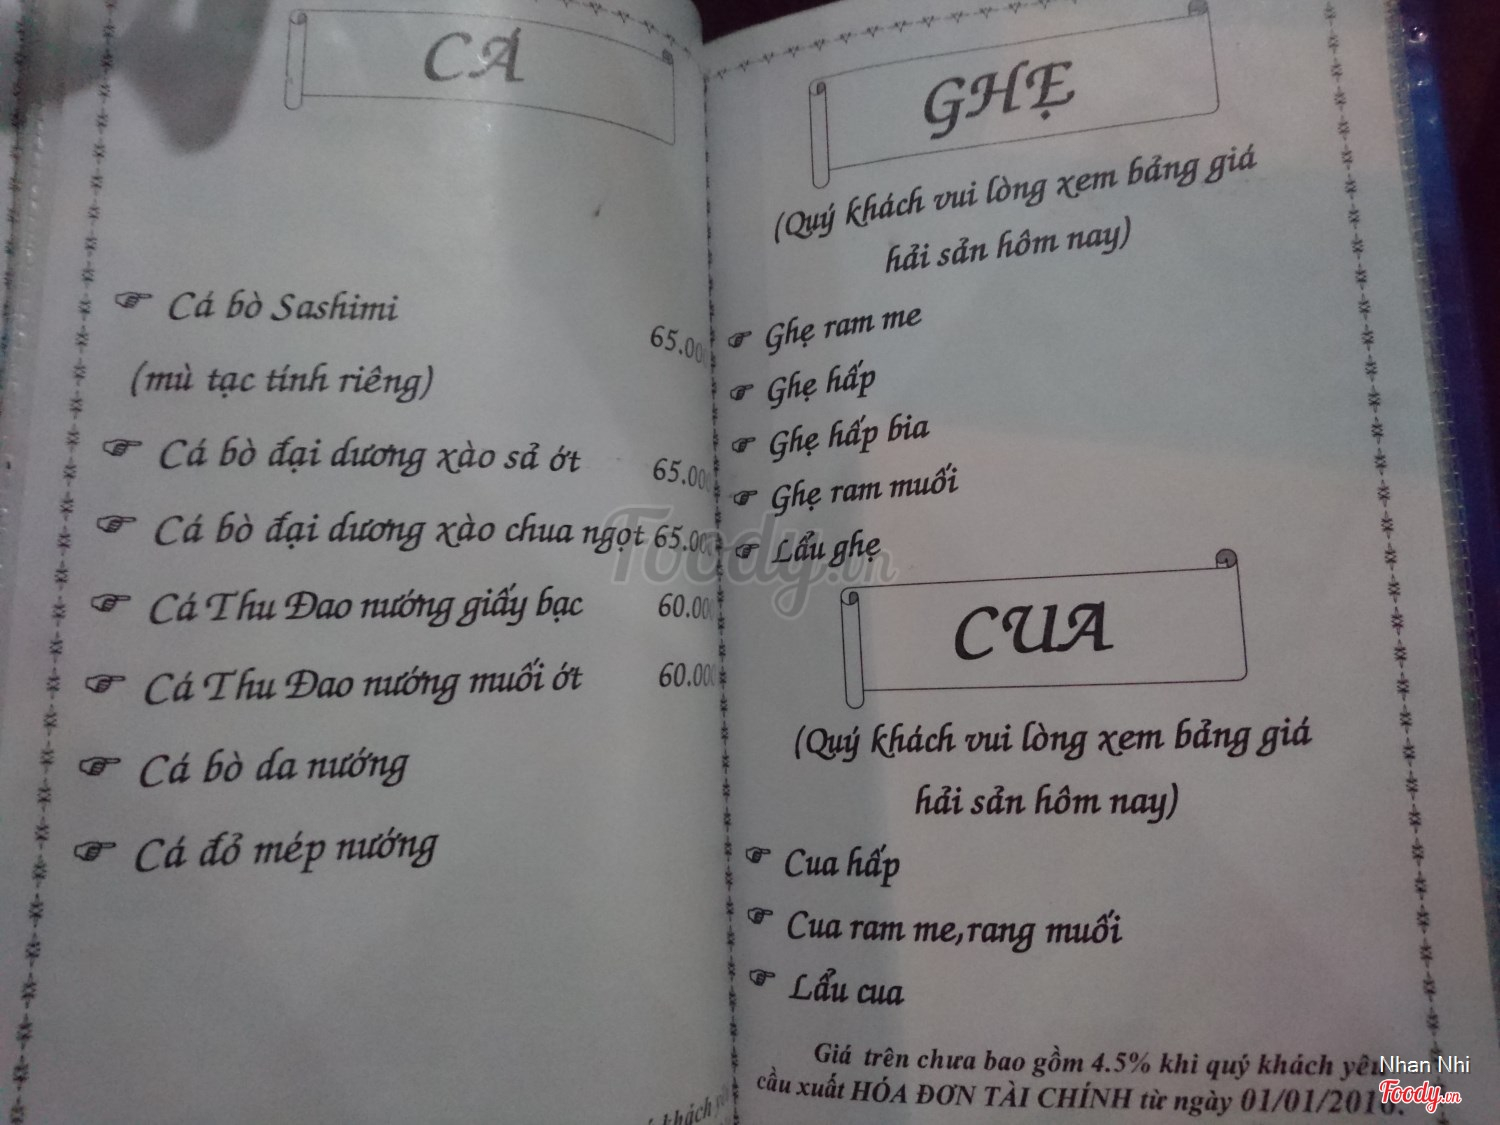 CÁ
Cá bò Sashimi 65.00
(mù tạc tính riêng)
Cá bò đại dương xào sả ớt 65.000
Cá bò đại dương xào chua ngọt 65.00
Cá Thu Đao nướng giấy bạc 60.00
Cá Thu Đao nướng muối ớt 60.00
Cá bò da nướng
Cá đỏ mép nướng
khách
GHẸ
(Quý khách vui lòng xem bảng giá
hải sản hôm nay)
Ghẹ ram me
Ghẹ hấp
Ghẹ hấp bia
Ghẹ ram muối
Lẩu ghẹ
CUA
(Quý khách vui lòng xem bảng giá
hải sản hôm nay)
Cua hấp
Cua ram me,rang muối
Lẩu cua
Giá trên chưa bao gồm 4.5% khi quý khách yêu
cầu xuất HÓA ĐƠN TÀI CHÍNH từ ngày 01/01/2016.
Foody.vn
Nhan Nhi
Foody.vn